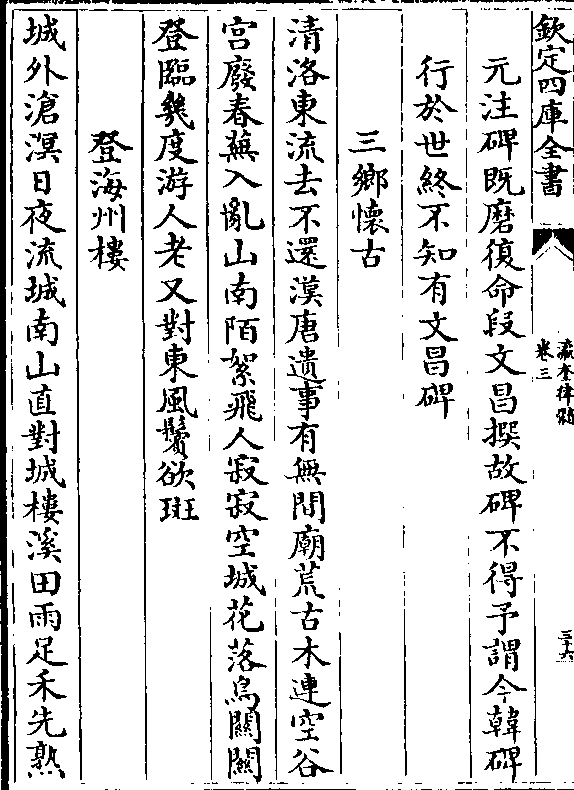 欽定四庫全書
瀛奎律髓
卷三
三十六
元注碑既磨復命段文昌撰故碑不得予謂今韓碑
行於世終不知有文昌碑
三鄉懷古
清洛東流去不還漢唐遺事有無間廟荒古木連空谷
宮廢春蕪入亂山南陌絮飛人寂寂空城花落鳥關關
登臨幾度游人老又對東風鬢欲斑
登海州樓
城外滄溟日夜流城南山直對城樓溪田雨足禾先熟